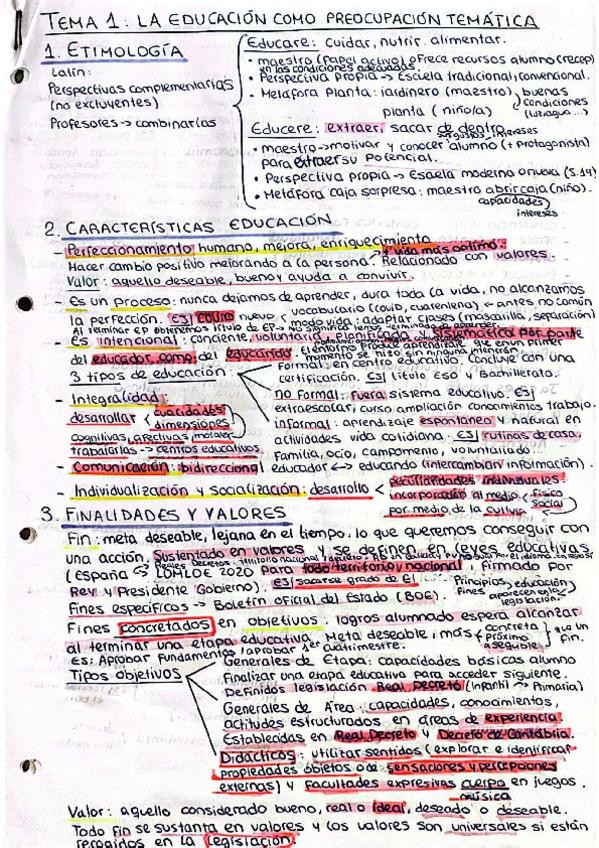 TEMA 1: LA EDUCACIÓN COMO PREOCUPACIÓN TEMÁTICA
1. ETIMOLOGÍA
Latín:
Perspectivas complementarias
(no excluyentes)
Profesores → combinarlas
Educare: cuidar, nutrir, alimentar.
• maestro (papel activo) ofrece recursos alumno (recep)
en las condiciones adecuadas.
• Perspectiva propia → Escuela tradicional, convencional.
• Metáfora Planta: jardinero (maestro), buenas
condiciones
planta (niño/a)
Educere: extraer, sacar de dentro.
• maestro → motivar y conocer alumno (+ protagonista)
para extraer su potencial.
• Perspectiva propia → Escuela moderna o nueva (S.19)
• Metáfora caja sorpresa: maestro abrir caja (niño).
capacidades
intereses
2. CARACTERÍSTICAS EDUCACIÓN
- Perfeccionamiento humano, mejora, enriquecimiento
+ vida más óptima.
Hacer cambio positivo mejorando a la persona. Relacionado con valores.
Valor: aquello deseable, bueno y ayuda a convivir.
- Es un proceso: nunca dejamos de aprender, dura toda la vida, no alcanzamos
vocabulario (covid, cuarentena) ← antes no común
la perfección. Ej covid nuevo modo vida: adaptar clases (mascarilla, separación)
Al terminar EP obtenemos título de EP →
Es intencional: conciente, voluntaria, planificada y sistemática por parte
del educador como del educando.
momento se hizo sin ninguna intención
3 tipos de educación
formal: en centro educativo. Concluye con una
certificación. Ej título Eso y Bachillerato.
no formal: fuera sistema educativo. Ej
extraescolar, curso ampliación conocimientos trabajo.
informal: aprendizaje espontáneo y natural en
actividades vida cotidiana. Ej rutinas de casa,
familia, ocio, campamento, voluntariado.
- Integralidad:
desarrollar
capacidades
dimensiones
cognitivas, afectivas, motoras
trabajarlas → centros educativos.
- Comunicación: bidireccional educador ↔ educando (intercambian información).
- Individualización y Socialización: desarrollo
peculiaridades individuales
incorporación al medio
por medio de la cultura
Físico
Social
3. FINALIDADES Y VALORES
Fin: meta deseable, lejana en el tiempo, lo que queremos conseguir con
una acción. Sustentado en valores y se definen en leyes educativas
(España ↔ LOMLOE 2020 Para todo territorio nacional, firmado por
Rey y Presidente Gobierno). Ej sacarse grado de EI
Principios, educación
Fines aparecen en la
legislación.
Fines específicos → Boletín Oficial del Estado (BOE).
Fines concretados en objetivos: logros alumnado espera alcanzar
al terminar una etapa educativa. Meta deseable, más
concreta
próximo
asequible
que un
fin.
Ej: Aprobar Fundamentos / aprobar 1er cuatrimestre.
Tipos objetivos
Generales de Etapa: capacidades básicas alumno
Finalizar una etapa educativa para acceder siguiente.
Definidos legislación Real Decreto (Infantil → Primaria)
Generales de Área: capacidades, conocimientos,
actitudes estructurados en áreas de experiencia.
Establecidas en Real Decreto y Decreto de Cantabria.
Didácticos: utilizar sentidos (explorar e identificar
propiedades objetos o de sensaciones y percepciones
externas) y facultades expresivas cuerpo en juegos.
música
Valor: aquello considerado bueno, real o ideal, deseado o deseable.
Todo fin se sustanta en valores y los valores son universales si están
recogidos en la legislación.